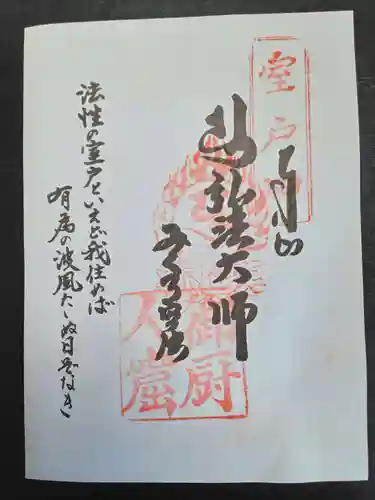 室戸
弘法大師
御厨
人窟
法性の室戸といえど我住めば
有為の波風たゝぬ日ぞなき